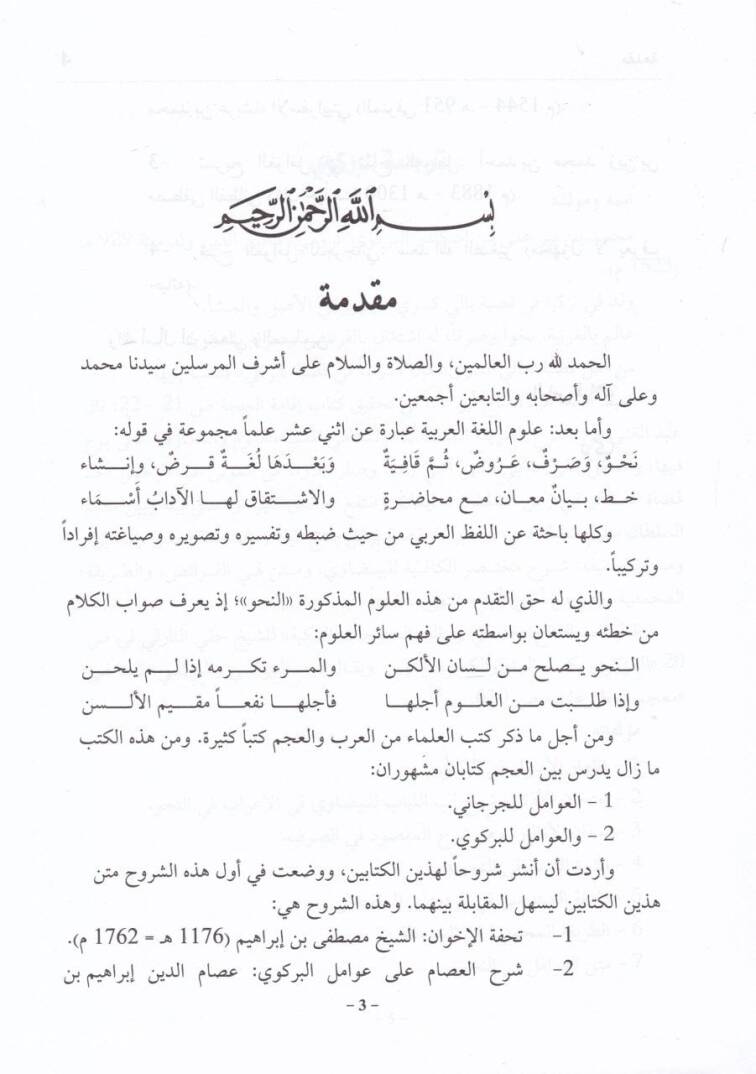 بِسْمِ اللَّهِ الرَّحْمَٰنِ الرَّحِيمِ
مقدمة
الحمد لله رب العالمين، والصلاة والسلام على أشرف المرسلين سيدنا محمد
وعلى آله وأصحابه والتابعين أجمعين.
وأما بعد: علوم اللغة العربية عبارة عن اثني عشر علماً مجموعة في قوله:
نَحْوٌ، وَصَرْفٌ، عَرُوضٌ، ثُمَّ قَافِيَةٌ وَبَعْدَهَا لُغَةٌ قرضٌ، وإنشاء
خط، بيانٌ معان، مع محاضرةٍ والاشتقاق لها الآدابُ أَسْمَاء
وكلها باحثة عن اللفظ العربي من حيث ضبطه وتفسيره وتصويره وصياغته إفراداً
وتركيباً.
والذي له حق التقدم من هذه العلوم المذكورة «النحو»؛ إذ يعرف صواب الكلام
من خطئه ويستعان بواسطته على فهم سائر العلوم:
النحو يصلح من لسان الألكن والمرء تكرمه إذا لم يلحن
وإذا طلبت من العلوم أجلها فأجلها نفعاً مقيم الألسن
ومن أجل ما ذكر كتب العلماء من العرب والعجم كتباً كثيرة. ومن هذه الكتب
ما زال يدرس بين العجم كتابان مشهوران:
1 - العوامل للجرجاني.
2 - والعوامل للبركوي.
وأردت أن أنشر شروحاً لهذين الكتابين، ووضعت في أول هذه الشروح متن
هذين الكتابين ليسهل المقابلة بينهما. وهذه الشروح هي:
1- تحفة الإخوان: الشيخ مصطفى بن إبراهيم (1176 هـ = 1762 م).
2- شرح العصام على عوامل البركوي: عصام الدين إبراهيم بن
- 3 -